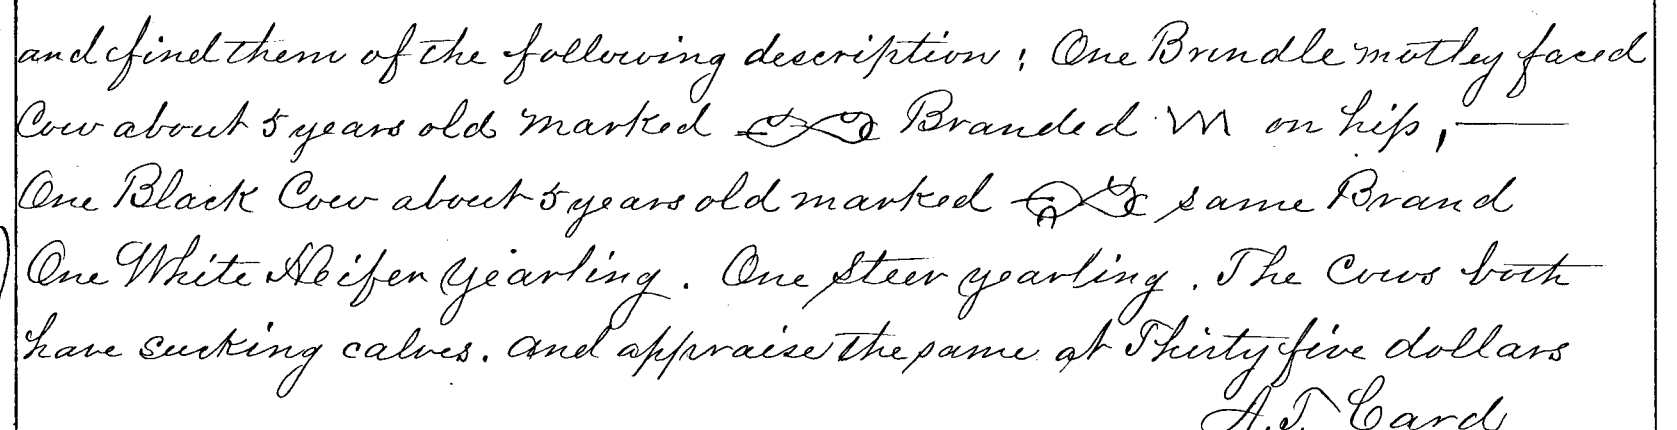 and find them of the following description ; One Brindle motley faced
Cow about 5 years old marked Branded M on hip ,
One Black Cow about 5 years old marked same Brand
One White Heifer yearling . One Steer yearling . The Cows both
have sucking calves . and appraise the same at Thirty five dollars
A.T. Card